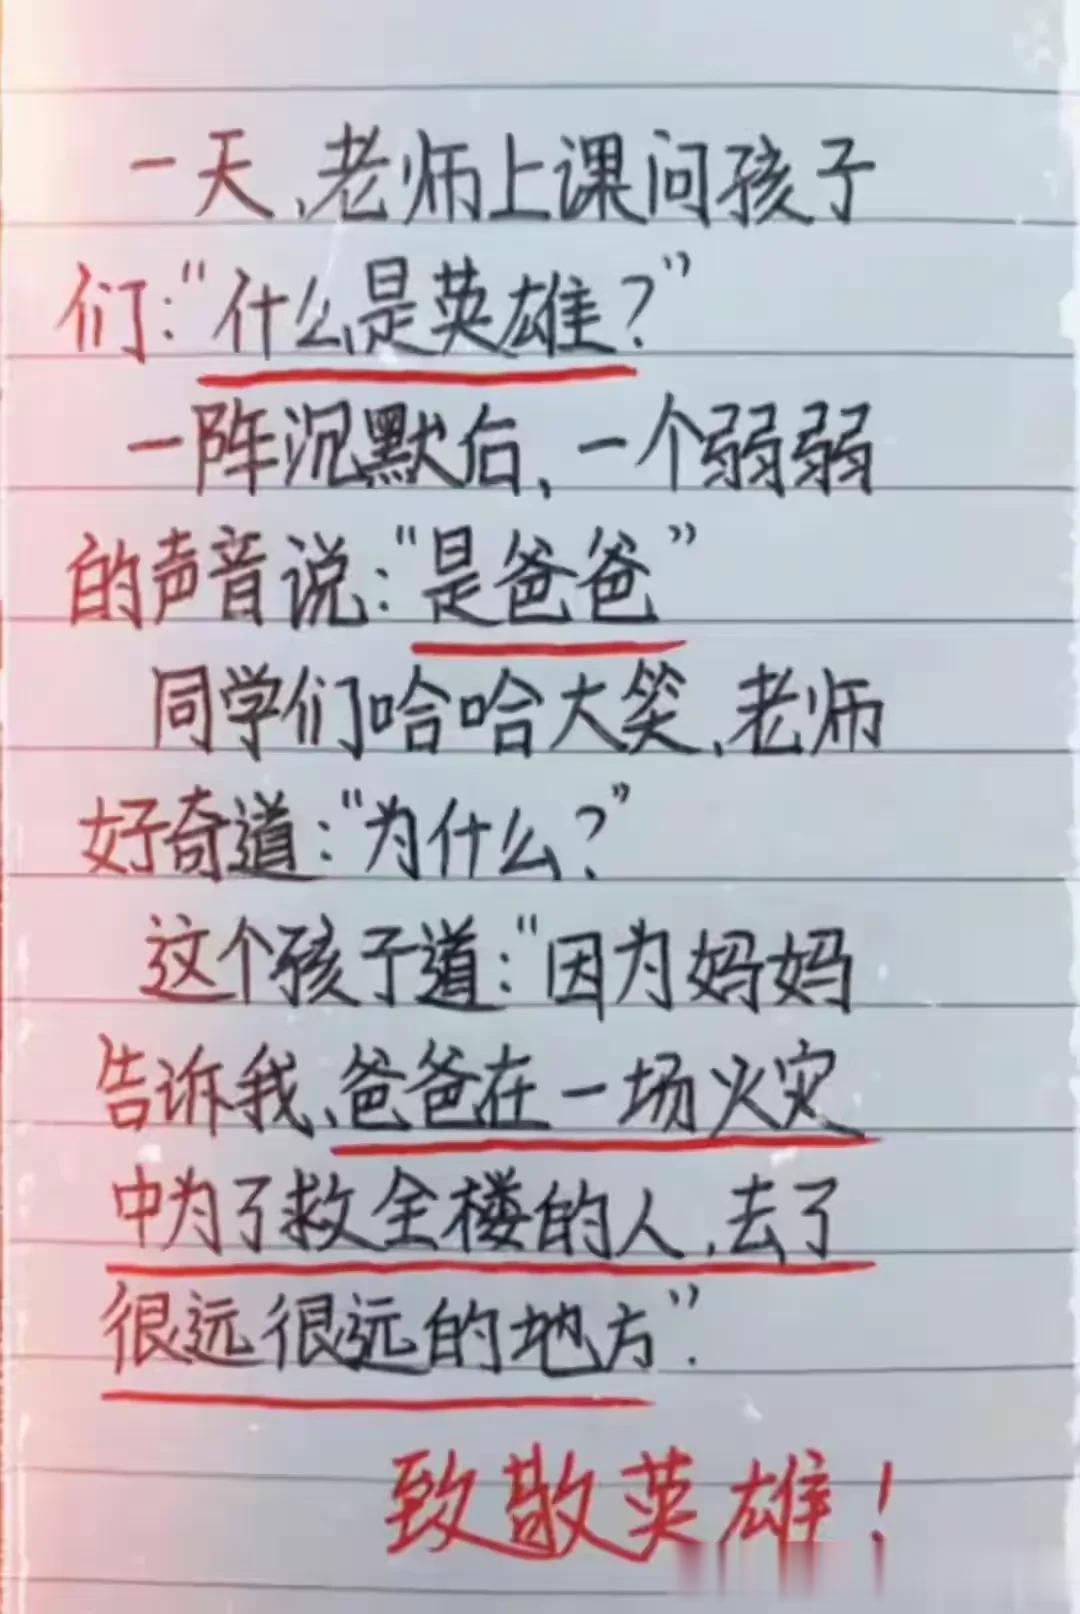 一天、老师上课问孩子
们："什么是英雄？"
一阵沉默后，一个弱弱
的声音说："是爸爸"
同学们哈哈大笑、老师
好奇道："为什么？"
这个孩子道："因为妈妈
告诉我、爸爸在一场火灾
中为了救全楼的人，去了
很远很远的地方".
致敬英雄！